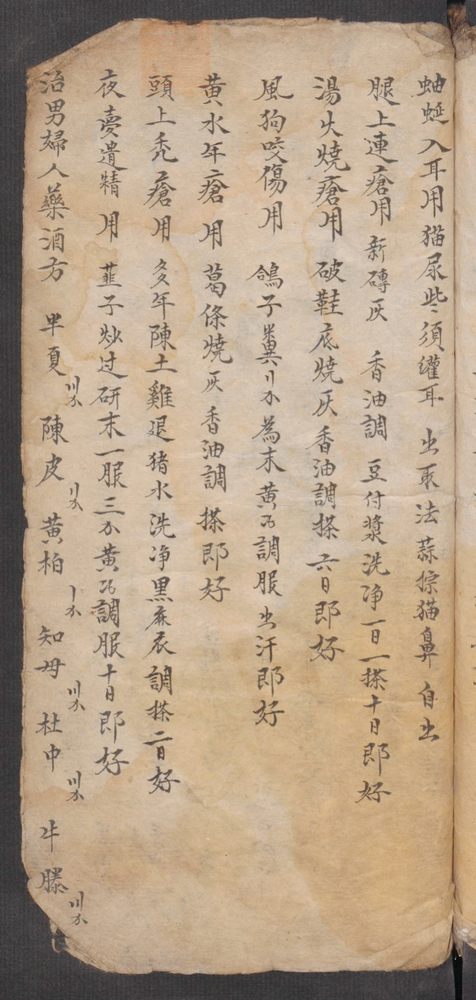 蚰蜒入耳用猫尿些須鑵耳 出取法蒜擦猫鼻自出
腿上連瘡用 新磚灰 香油調 豆付漿洗净一日一搽十日即好
湯火燒瘡用 破鞋底燒灰香油調搽 六日即好
風狗咬傷用 鴿子糞〢分為末黄酒調服出汗即好
黄水年瘡用 葛條燒灰香油調搽即好
頭上禿瘡用 多年陳土雞退猪水洗净黑麻衣調搽二日好
夜夢遺精用 韮子炒过研末一服三分黄酒調服十日即好
治男婦人藥酒方 半夏〣分 陳皮〢分 黄柏〡分 知母〣分 杜中〣分 牛膝〣分